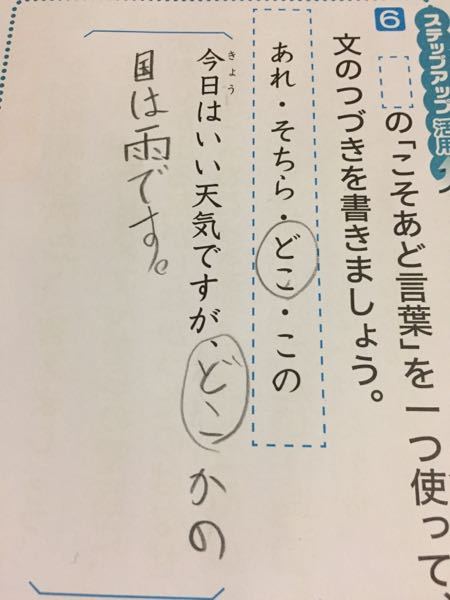 ステップアップ活用
6 の「こそあど言葉」を一つ使って、
文のつづきを書きましょう。
あれ・そちら・どこ・この
きょう
今日はいい天気ですが、どこかの
国は雨です。